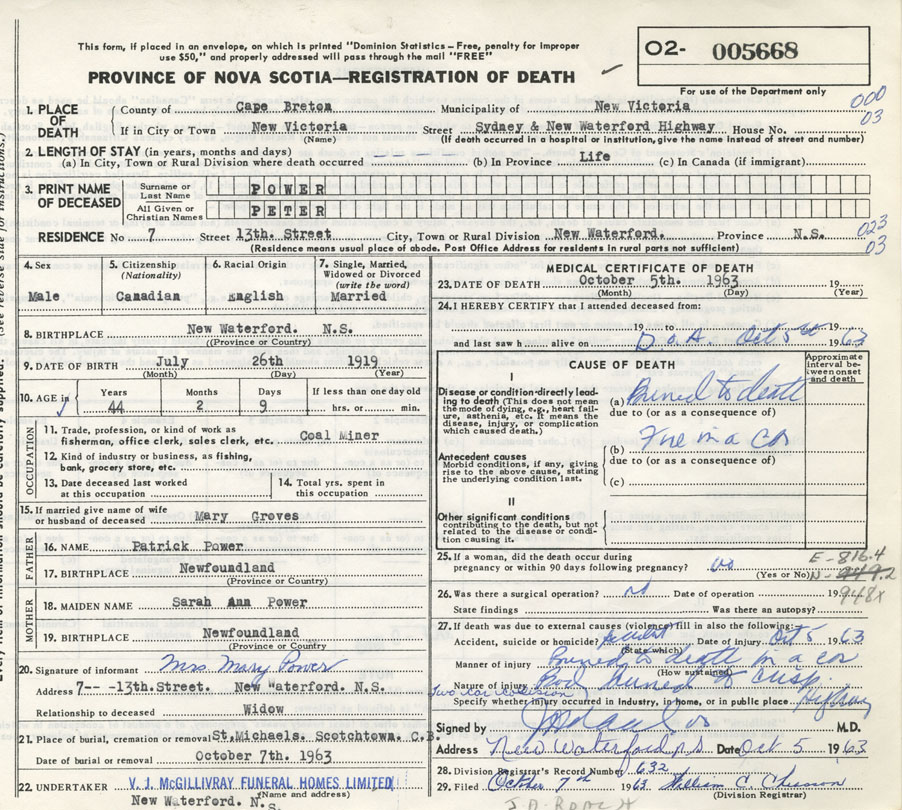 This form, if placed in an envelope, on which is printed "Dominion Statistics – Free, penalty for improper
use $50," and properly addressed will pass through the mail "FREE"
PROVINCE OF NOVA SCOTIA—REGISTRATION OF DEATH
O2- 005668
For use of the Department only
000
03
1. PLACE OF DEATH
County of Cape Breton Municipality of New Victoria
If in City or Town New Victoria Street Sydney & New Waterford Highway House No.
(Name) (If death occurred in a hospital or institution, give the name instead of street and number)
2. LENGTH OF STAY (in years, months and days)
(a) In City, Town or Rural Division where death occurred (b) In Province Life (c) In Canada (if immigrant)
3. PRINT NAME OF DECEASED
Surname or Last Name POWER
All Given or Christian Names PETER
RESIDENCE No 7 Street 13th. Street City, Town or Rural Division New Waterford. Province N.S.
(Residence means usual place of abode. Post Office Address for residents in rural parts not sufficient)
023
03
4. Sex 5. Citizenship (Nationality) 6. Racial Origin 7. Single, Married, Widowed or Divorced (write the word)
Male Canadian English Married
8. BIRTHPLACE New Waterford. N.S.
(Province or Country)
9. DATE OF BIRTH July 26th 1919
(Month) (Day) (Year)
10. AGE in Years Months Days If less than one day old
44 2 9 hrs. or min.
OCCUPATION
11. Trade, profession, or kind of work as
fisherman, office clerk, sales clerk, etc. Coal Miner
12. Kind of industry or business, as fishing,
bank, grocery store, etc.
13. Date deceased last worked
at this occupation
14. Total yrs. spent in
this occupation
15. If married give name of wife
or husband of deceased Mary Groves
FATHER
16. NAME Patrick Power
17. BIRTHPLACE Newfoundland
(Province or Country)
MOTHER
18. MAIDEN NAME Sarah Ann Power
19. BIRTHPLACE Newfoundland
(Province or Country)
20. Signature of informant Mrs. Mary Power
Address 7-- -13th.Street. New Waterford. N.S.
Relationship to deceased Widow
21. Place of burial, cremation or removal St.Michaels. Scotchtown. C.B.
Date of burial or removal October 7th. 1963
22. UNDERTAKER V. J. McGILLIVRAY FUNERAL HOMES LIMITED
(Name and address)
New Waterford. N.S.
MEDICAL CERTIFICATE OF DEATH
23. DATE OF DEATH October 5th. 1963 19
(Month) (Day) (Year)
24. I HEREBY CERTIFY that I attended deceased from:
19 to 19
and last saw h alive on D.O.A. Oct 5 1963
CAUSE OF DEATH
Approximate interval between onset and death
I
Disease or condition directly leading to death (This does not mean the mode of dying, e.g., heart failure, asthenia, etc. It means the disease, injury, or complication which caused death.)
(a) Burned to death
due to (or as a consequence of)
(b) Fire in a car
due to (or as a consequence of)
Antecedent causes
Morbid conditions, if any, giving rise to the above cause, stating the underlying condition last.
(c)
II
Other significant conditions
contributing to the death, but not related to the disease or condition causing it.
25. If a woman, did the death occur during
pregnancy or within 90 days following pregnancy? no (Yes or No)
E-816.4
N-949.2
948X
26. Was there a surgical operation? no Date of operation 19
State findings Was there an autopsy?
27. If death was due to external causes (violence) fill in also the following:
Accident, suicide or homicide? Accident Date of injury Oct 5 1963
(State which)
Manner of injury Burned to death in a car
(How sustained)
Nature of injury Body burned to crisp.
Two car collision
Specify whether injury occurred in Industry, in home, or in public place Highway
Signed by M.D.
Address New Waterford N.S Date Oct 5 1963
28. Division Registrar's Record Number 632
29. Filed October 7th 1963 William C.
(Division Registrar)
J.D. ROACH